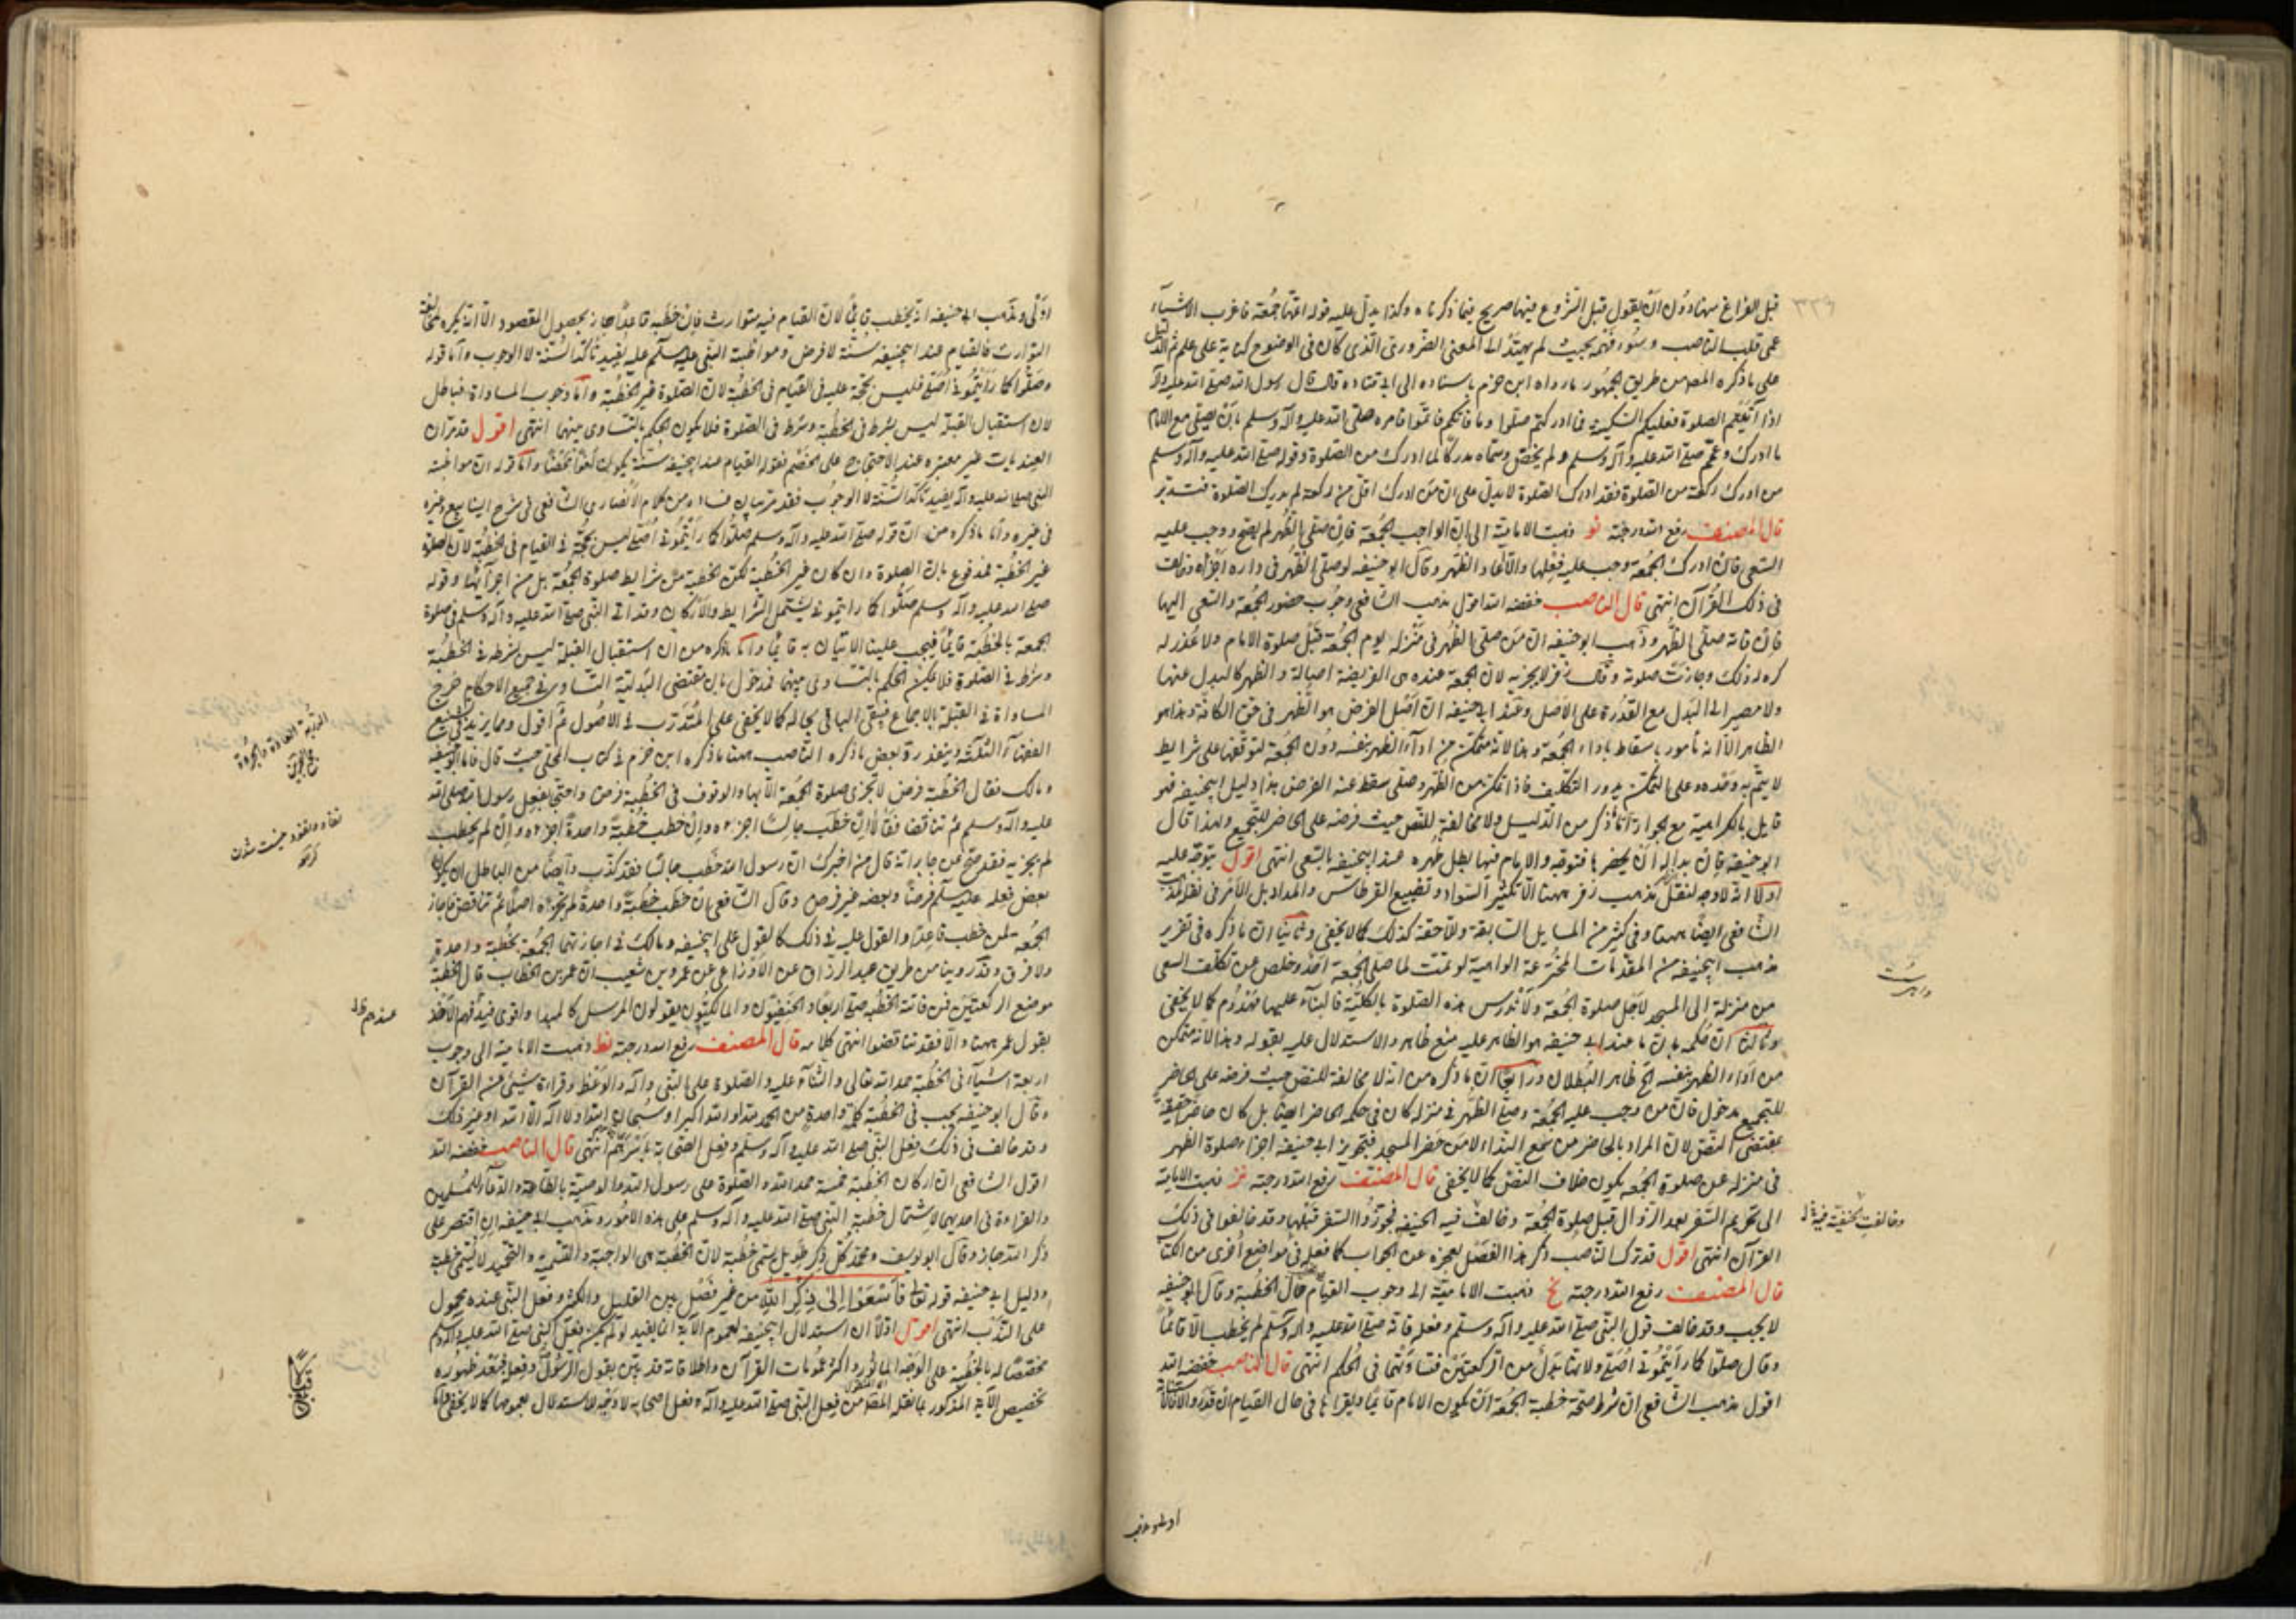 قبل الفراغ منها دون أن يقول قبل الشروع فيها صريح فيما ذكرناه وكذا يدل عليه قوله اتمها جمعة فاغرب الاشياء
عمى قلب الناصب وسوء فهمه بحيث لم يهتد الى المعنى الضروري الذي كان في الوضوح كناية على علم ثم الدليل
على ما ذكره المصنف من طريق الجمهور ما رواه ابن حزم باسناده الى ابي قتادة قال قال رسول الله صلى الله عليه وآله
اذا اتيتم الصلوة فعليكم السكينة فما ادركتم فصلوا وما فاتكم فاتموا فامره صلى الله عليه وآله وسلم بان يصلي مع الامام
ما ادرك وعم صلى الله عليه وآله وسلم ولم يخص وسماه مدركا لما ادرك من الصلوة وقوله صلى الله عليه وآله وسلم
من ادرك ركعة من الصلوة فقد ادرك الصلوة لا يدل على ان من ادرك اقل من ركعة لم يدرك الصلوة فتدبر
قال المصنف رفع الله درجته نو ذهبت الامامية الى ان الواجب الجمعة فان صلى الظهر لم يصح ووجب عليه
السعي فان ادرك الجمعة وجب عليه فعلها والا اعاد الظهر وقال ابو حنيفه لو صلى الظهر في داره اجزأه وخالف
في ذلك القرآن انتهى قال الناصب خفضه الله اقول مذهب الشافعي وجوب حضور الجمعة والسعي اليها
فان فاته صلى الظهر وذهب ابو حنيفه ان من صلى الظهر في منزله يوم الجمعة قبل صلوة الامام ولا عذر له
كره له ذلك وجازت صلوته وقال زفر لا يجزيه لان الجمعة عنده هي الفريضة اصالة والظهر كالبدل عنها
ولا مصير الى البدل مع القدرة على الاصل وعند ابي حنيفه ان اصل الفرض هو الظهر في حق الكافة وهذا هو
الظاهر الا انه مأمور باسقاطه باداء الجمعة وهذا لانه متمكن من اداء الظهر بنفسه دون الجمعة لتوقفها على شرايط
لا يتم به وحده وعلى التمكن يدور التكليف فاذا تمكن من الظهر وصلى سقط عنه الفرض هذا دليل ابيحنيفه فهو
قايل بالكراهية مع الجواز لما ذكر من الدليل ولا مخالفة للنص حيث فرضه على الحاضر للتجميع ولهذا قال
ابو حنيفه فان بدا له ان يحضرها فتوجه والامام فيها بطل ظهره عند ابيحنيفه بالسعي انتهى اقول يتوجه عليه
اولا انه لا وجه لنقل مذهب زفر ههنا الا تكثير السواد وتضييع القرطاس والمداد بل الامر في نقل مذهب
الشافعي ايضا ههنا وفي كثير من المسايل السابقة واللاحقة كذلك كما لا يخفى وثانيا ان ما ذكره في تقرير
مذهب ابيحنيفه من المقدمات المخترعة الواهية لو تمت لما صلى الجمعة احد وخلص عن تكلف السعي
من منزله الى المسجد لاجل صلوة الجمعة ولاندرس هذه الصلوة بالكلية فالبناء عليها مهدوم كما لا يخفى
وثالثا ان حكمه بان ما عند ابي حنيفه هو الظاهر عليه منع ظاهر والاستدلال عليه بقوله وهذا لانه متمكن
من اداء الظهر بنفسه الخ ظاهر البطلان ورابعا ان ما ذكره من انه لا مخالفة للنص حيث فرضه على الحاضر
للتجميع مدخول فان من وجب عليه الجمعة وصلى الظهر في منزله كان في حكم الحاضر ايضا بل كان حاضرا حقيقة
بمقتضى النص لان المراد بالحاضر من سمع النداء لا من حضر المسجد فتجويز ابي حنيفه اجزاء صلوة الظهر
في منزله عن صلوة الجمعة يكون خلاف النص كما لا يخفى قال المصنف رفع الله درجته نز ذهبت الامامية
الى تحريم السفر بعد الزوال قبل صلوة الجمعة وخالف فيه الحنيفه فجوزوا السفر قبلها وقد خالفوا في ذلك
القرآن انتهى اقول قد ترك الناصب ذكر هذا الفصل لعجزه عن الجواب كما فعله في مواضع أخرى من الكتاب
قال المصنف رفع الله درجته نح ذهبت الامامية الى وجوب القيام حال الخطبة وقال ابو حنيفه
لا يجب وقد خالف قول النبي صلى الله عليه وآله وسلم وفعله فانه صلى الله عليه وآله وسلم لم يخطب الا قائما
وقال صلوا كما رأيتموني اصلي ولانها بدل من الركعتين فتساوتهما في الحكم انتهى قال الناصب خفضه الله
اقول مذهب الشافعي ان شرط صحة خطبة الجمعة ان يكون الامام قايما ويقرأها في حال القيام ان قدر والا فالاستنابة
وخالفت الحنفية فيه
اولى وذهب
اولى ومذهب ابي حنيفه انه يخطب قائما لان القيام فيه متوارث فان خطبه قاعدا جاز بحصول المقصود الا انه يكره لمخالفة
التوارث فالقيام عند ابيحنيفه سنة لا فرض ومواظبة النبي عليه وسلم عليه يفيد تاكد السنة لا الوجوب واما قوله
وصلوا كما رأيتموني اصلي فليس بحجة عليه في القيام في الخطبة لان الصلوة غير الخطبة واما وجوب المساواة فباطل
لان استقبال القبلة ليس بشرط في الخطبة وشرط في الصلوة فلا يكون الحكم بالتساوي بينهما انتهى اقول قد مر ان
العنديات غير معتبره عند الاحتجاج على الخصم فقوله القيام عند ابيحنيفه سنة يكون لغوا محضا واما قوله ان مواظبة
النبي صلى الله عليه وآله يفيد تاكد السنة لا الوجوب فقد مر بيان فساده من كلام الانصاري الشافعي في شرح الينابيع وغيره
في غيره واما ما ذكره من ان قوله صلى الله عليه وآله وسلم صلوا كما رأيتموني اصلي ليس بحجة في القيام في الخطبة لان الصلوة
غير الخطبة فمدفوع بان الصلوة وان كان غير الخطبة لكن الخطبة من شرايط صلوة الجمعة بل من اجزائها وقوله
صلى الله عليه وآله وسلم صلوا كما رأيتموني يشتمل الشرايط والاركان وقد اتى النبي صلى الله عليه وآله وسلم في صلوة
الجمعة بالخطبة قايما فيجب علينا الاتيان به قايما واما ما ذكره من ان استقبال القبلة ليس بشرط في الخطبة
وشرط في الصلوة فلا يكون الحكم بالتساوي بينهما فمدخول بان مقتضى البدلية التساوي في جميع الاحكام خرج
المساواة في القبلة بالاجماع فبقي الباقي بحاله كما لا يخفى على المتدرب في الاصول ثم اقول ومما يزيد في تشنيع
الفقهاء الثلثة وينفذ رد بعض ما ذكره الناصب ههنا ما ذكره ابن حزم في كتاب المحلى حيث قال فاما ابو حنيفه
ومالك فقال الخطبة فرض لا تجزى صلوة الجمعة الا بها والوقوف في الخطبة فرض واحتجا بفعل رسول الله صلى الله
عليه وآله وسلم ثم تناقضا فقالا ان خطب جالسا اجزءه وان خطب خطبة واحدة اجزءه وان لم يخطب
لم يجزيه فقد صح عن جابر انه قال من اخبرك ان رسول الله خطب جالسا فقد كذب وايضا من الباطل ان يكون
بعض فعله عليه وسلم فرضا وبعضه غير فرض وقال الشافعي ان خطب خطبة واحدة لم تجزءه اصلا ثم تناقض فاجاز
الجمعه لمن خطب قاعدا والقول عليه في ذلك كالقول على ابيحنيفه ومالك في اجازتهما الجمعة بخطبة واحدة
ولا فرق وقد روينا من طريق عبد الرزاق عن الاوزاعي عن عمرو بن شعيب ان عمر بن الخطاب قال الخطبة
موضع الركعتين فمن فاتته الخطبة صلى اربعا والحنيفيون والمالكيون يقولون المرسل كالمسند واقوى فيلزمهم الاخذ
بقول عمر ههنا والا فقد تناقضوا انتهى كلامه قال المصنف رفع الله درجته نط ذهبت الامامية الى وجوب
اربعة اشياء في الخطبة حمد الله تعالى والثناء عليه والصلوة على النبي وآله والوعظ وقراءة شيئ من القرآن
وقال ابو حنيفه يجب في الخطبة كلمة واحدة من الحمد لله او الله اكبر او سبحان الله او لا اله الا الله او غير ذلك
وقد خالف في ذلك فعل النبي صلى الله عليه وآله وسلم وفعل الصحابة باسرهم انتهى قال الناصب خفضه الله
اقول الشافعي ان اركان الخطبة خمسة حمد الله والصلوة على رسول الله والوصية بالطاعة والدعاء للمسلمين
والقراءة في احديهما لاشتمال خطبة النبي صلى الله عليه وآله وسلم على هذه الامور ومذهب ابي حنيفه ان اقتصر على
ذكر الله جاز وقال ابو يوسف ومحمد كل ذكر طويل يسمى خطبة لان الخطبة هي الواجبة والتسمية والتحميد لا يسمى خطبة
ودليل ابي حنيفه قوله تعالى فاسعوا الى ذكر الله من غير فصل بين القليل والكثير وفعل النبي عنده محمول
على الندب انتهى اقول اولا ان استدلال ابيحنيفه لعموم الآية انما يفيد لو لم يكن فعل النبي صلى الله عليه وآله وسلم
مخصصا له بالخطبة على الوجه المأثور واكثر عمومات القرآن واطلاقاته قد بين بقول الرسول وفعله فبعد ظهوره
تخصيص الآية المذكور بما نقله المصنف من فعل النبي صلى الله عليه وآله وفعل اصحابه لا وجه للاستدلال بعمومها كما لا يخفى
الدربة العادة والجرأة
عندهم